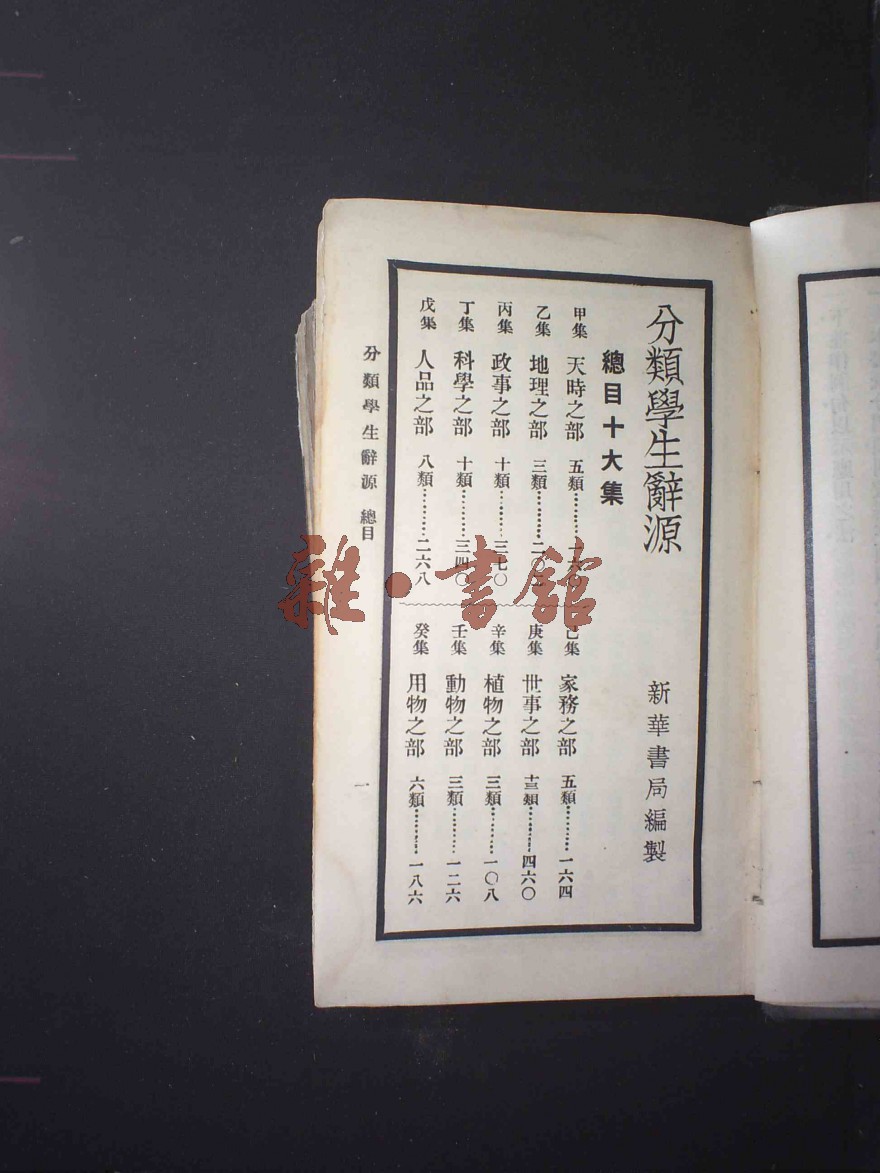 分類學生辭源
新華書局編製
總目十大集
甲集 天時之部 五類………
乙集 地理之部 三類………
丙集 政事之部 十類………三七〇
丁集 科學之部 十類………三四〇
戊集 人品之部 八類………二六八
己集 家務之部 五類………一六四
庚集 世事之部 十三類………四六〇
辛集 植物之部 三類………一〇八
壬集 動物之部 三類………一二六
癸集 用物之部 六類………一八六
分類學生辭源 總目
一
雜·書館